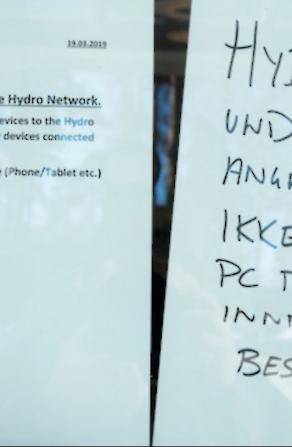 19.03.2019
e Hydro Network.
evices to the Hydro
devices connected
(Phone/Tablet etc.)
HYD
UND
ANGR
IKKE
PC T
INN
BES